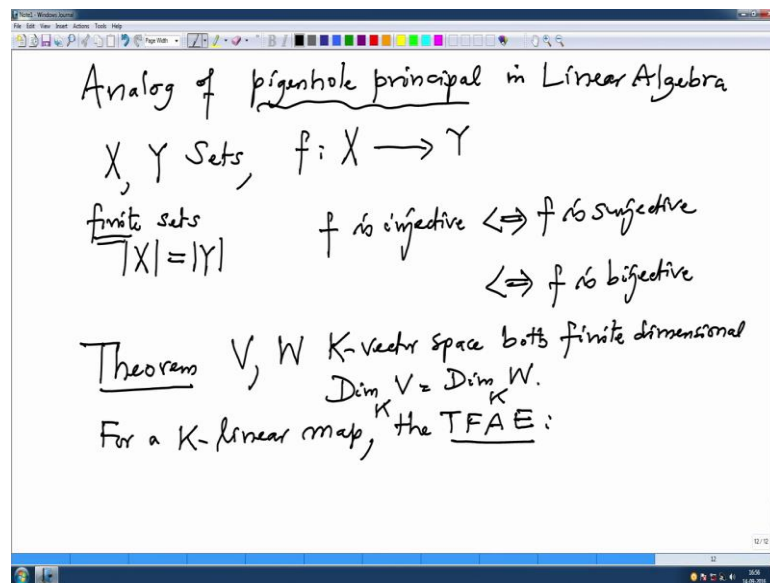 Note1 - Windows Journal
File Edit View Insert Actions Tools Help
Page Width
Analog of pigenhole principal in Linear Algebra
X, Y Sets, f: X ⟶ Y
finite sets f is injective <=> f is surjective
|X| = |Y|
<=> f is bijective
Theorem V, W K-vector space both finite dimensional
Dim_K V = Dim_K W.
For a K-linear map, the TFAE:
12/12
12
16:56